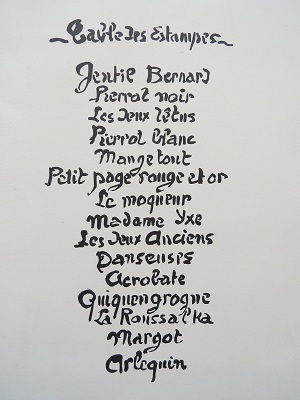 ~Table des Estampes~
Gentil Bernard
Pierrot noir
Les deux têtus
Pierrot blanc
Mangetout
Petit page rouge et or
Le moqueur
Madame Yxe
Les deux Anciens
Danseuses
Acrobate
Quiquengrogne
La Roussalka
Margot
Arlequin